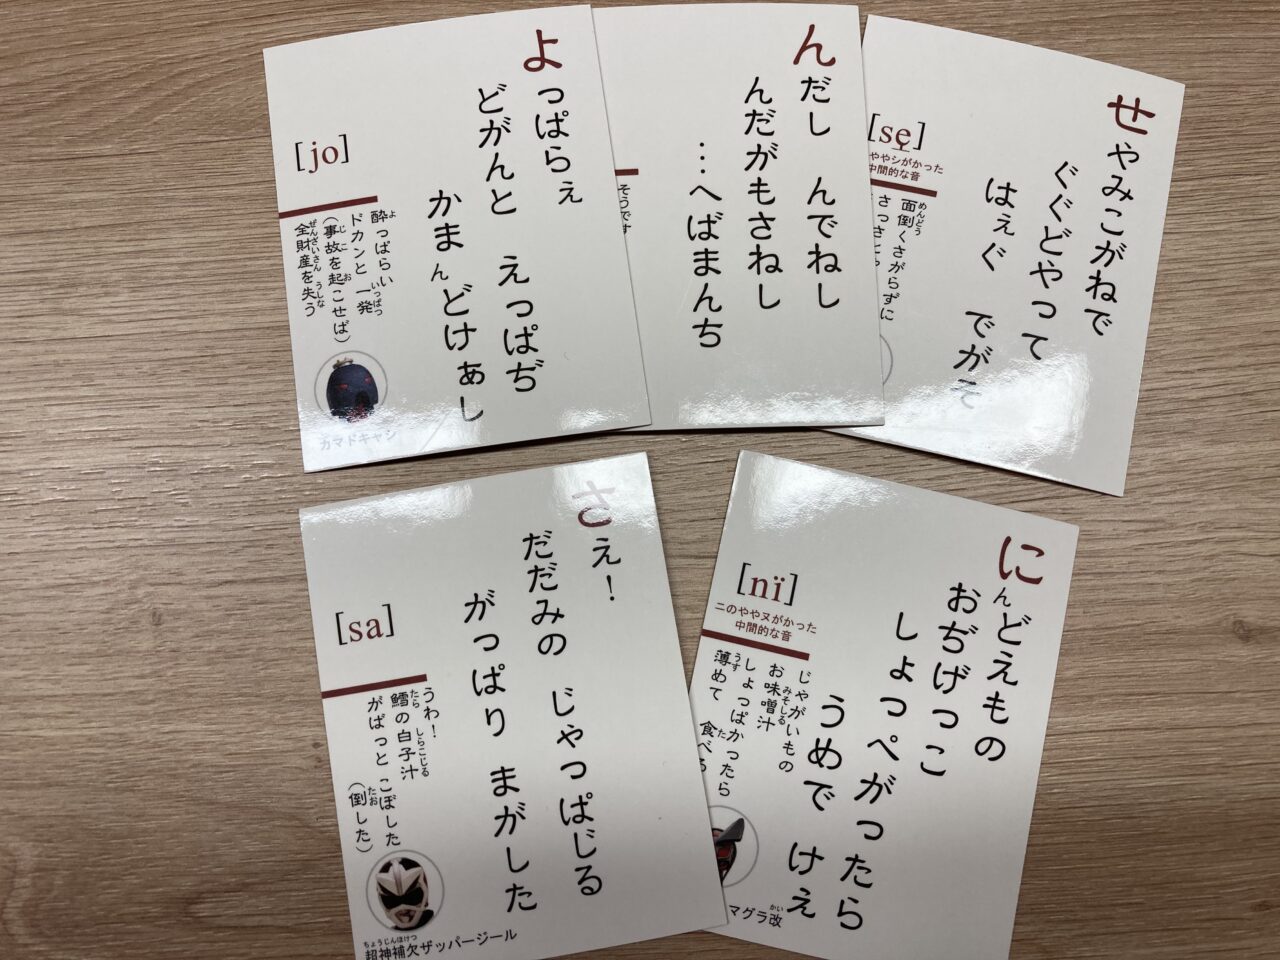 よっぱらぇ
どがんと えっぱぢ
かまんどけぁし
[jo]
酔っぱらい
ドカンと 一発
(事故を起こせば)
全財産を失う
カマドキャシ
んだし んでねし
んだがもさねし
…へばまんち
そうです
せやみこがねで
ぐぐどやって
はぇぐ でがそ
[se̝]
ややシがかった
中間的な音
面倒くさがらずに
さっさとや
さえ!
だだみの じゃっぱじる
がっぱり まがした
[sa]
うわ!
鱈の白子汁
がばっと こぼした
(倒した)
超神補欠ザッパージール
にんどえもの
おぢげっこ
しょっぺがったら
うめで けえ
[nï]
ニのややヌがかった
中間的な音
じゃがいもの
お味噌汁
しょっぱかったら
薄めて 食べる
マグラ改